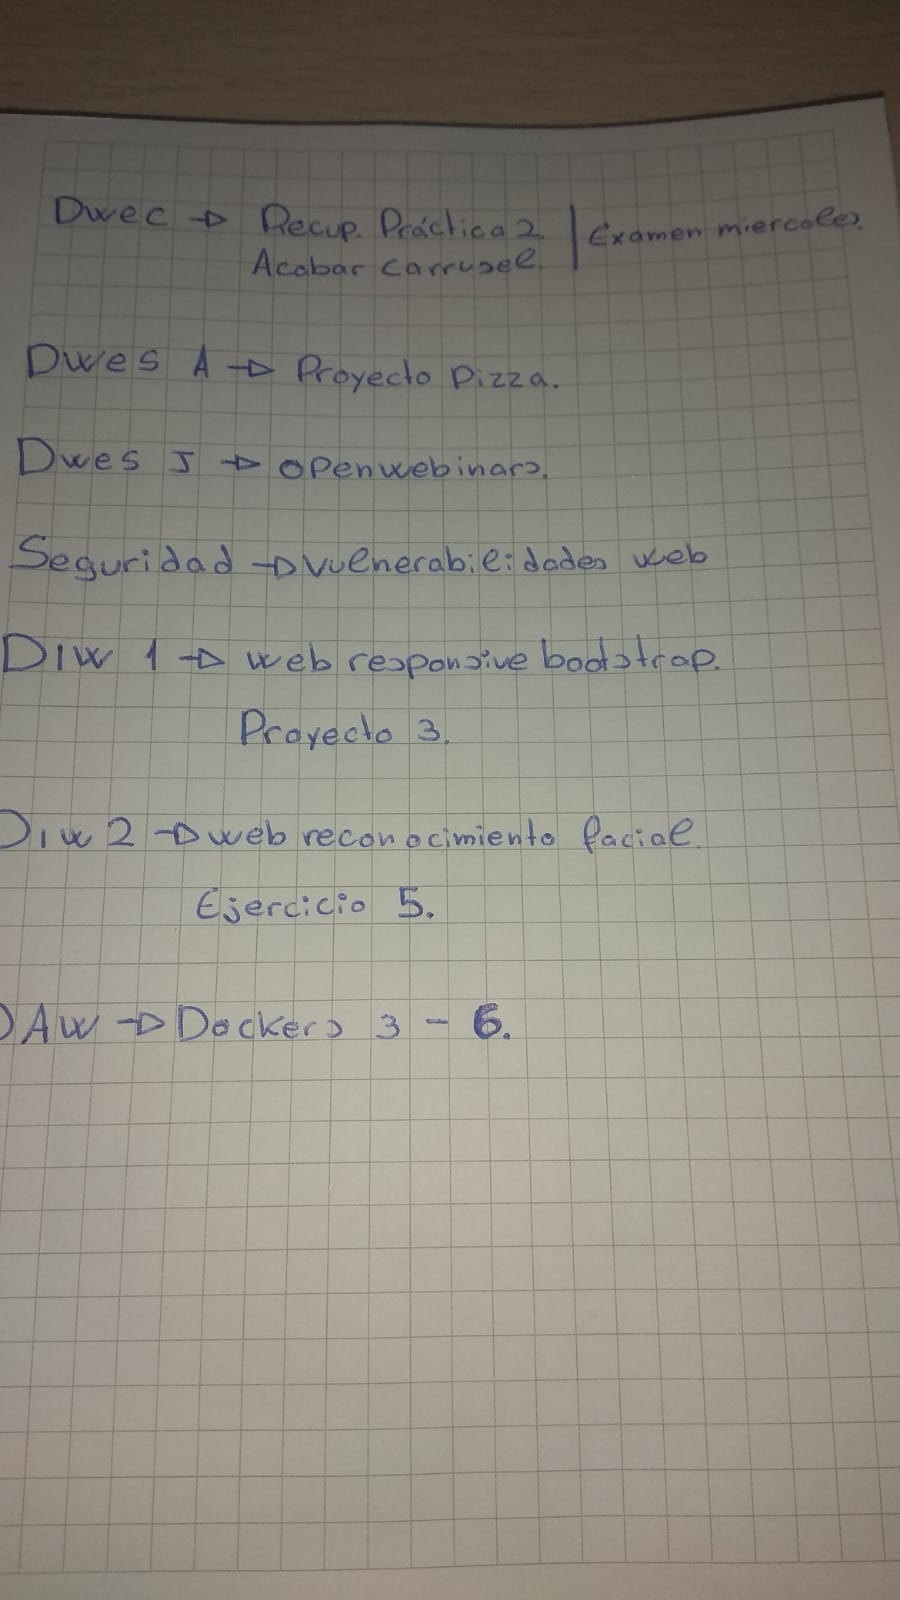 Dwec → Recup. Práctica 2. | Examen miercoles.
Acabar carrusel.
Dwes A → Proyecto Pizza.
Dwes J → openwebinars.
Seguridad → vulnerabilidades web
DIW 1 → web responsive bootstrap.
Proyecto 3.
Diw 2 → web reconocimiento facial.
Ejercicio 5.
DAW → Dockers 3 - 6.